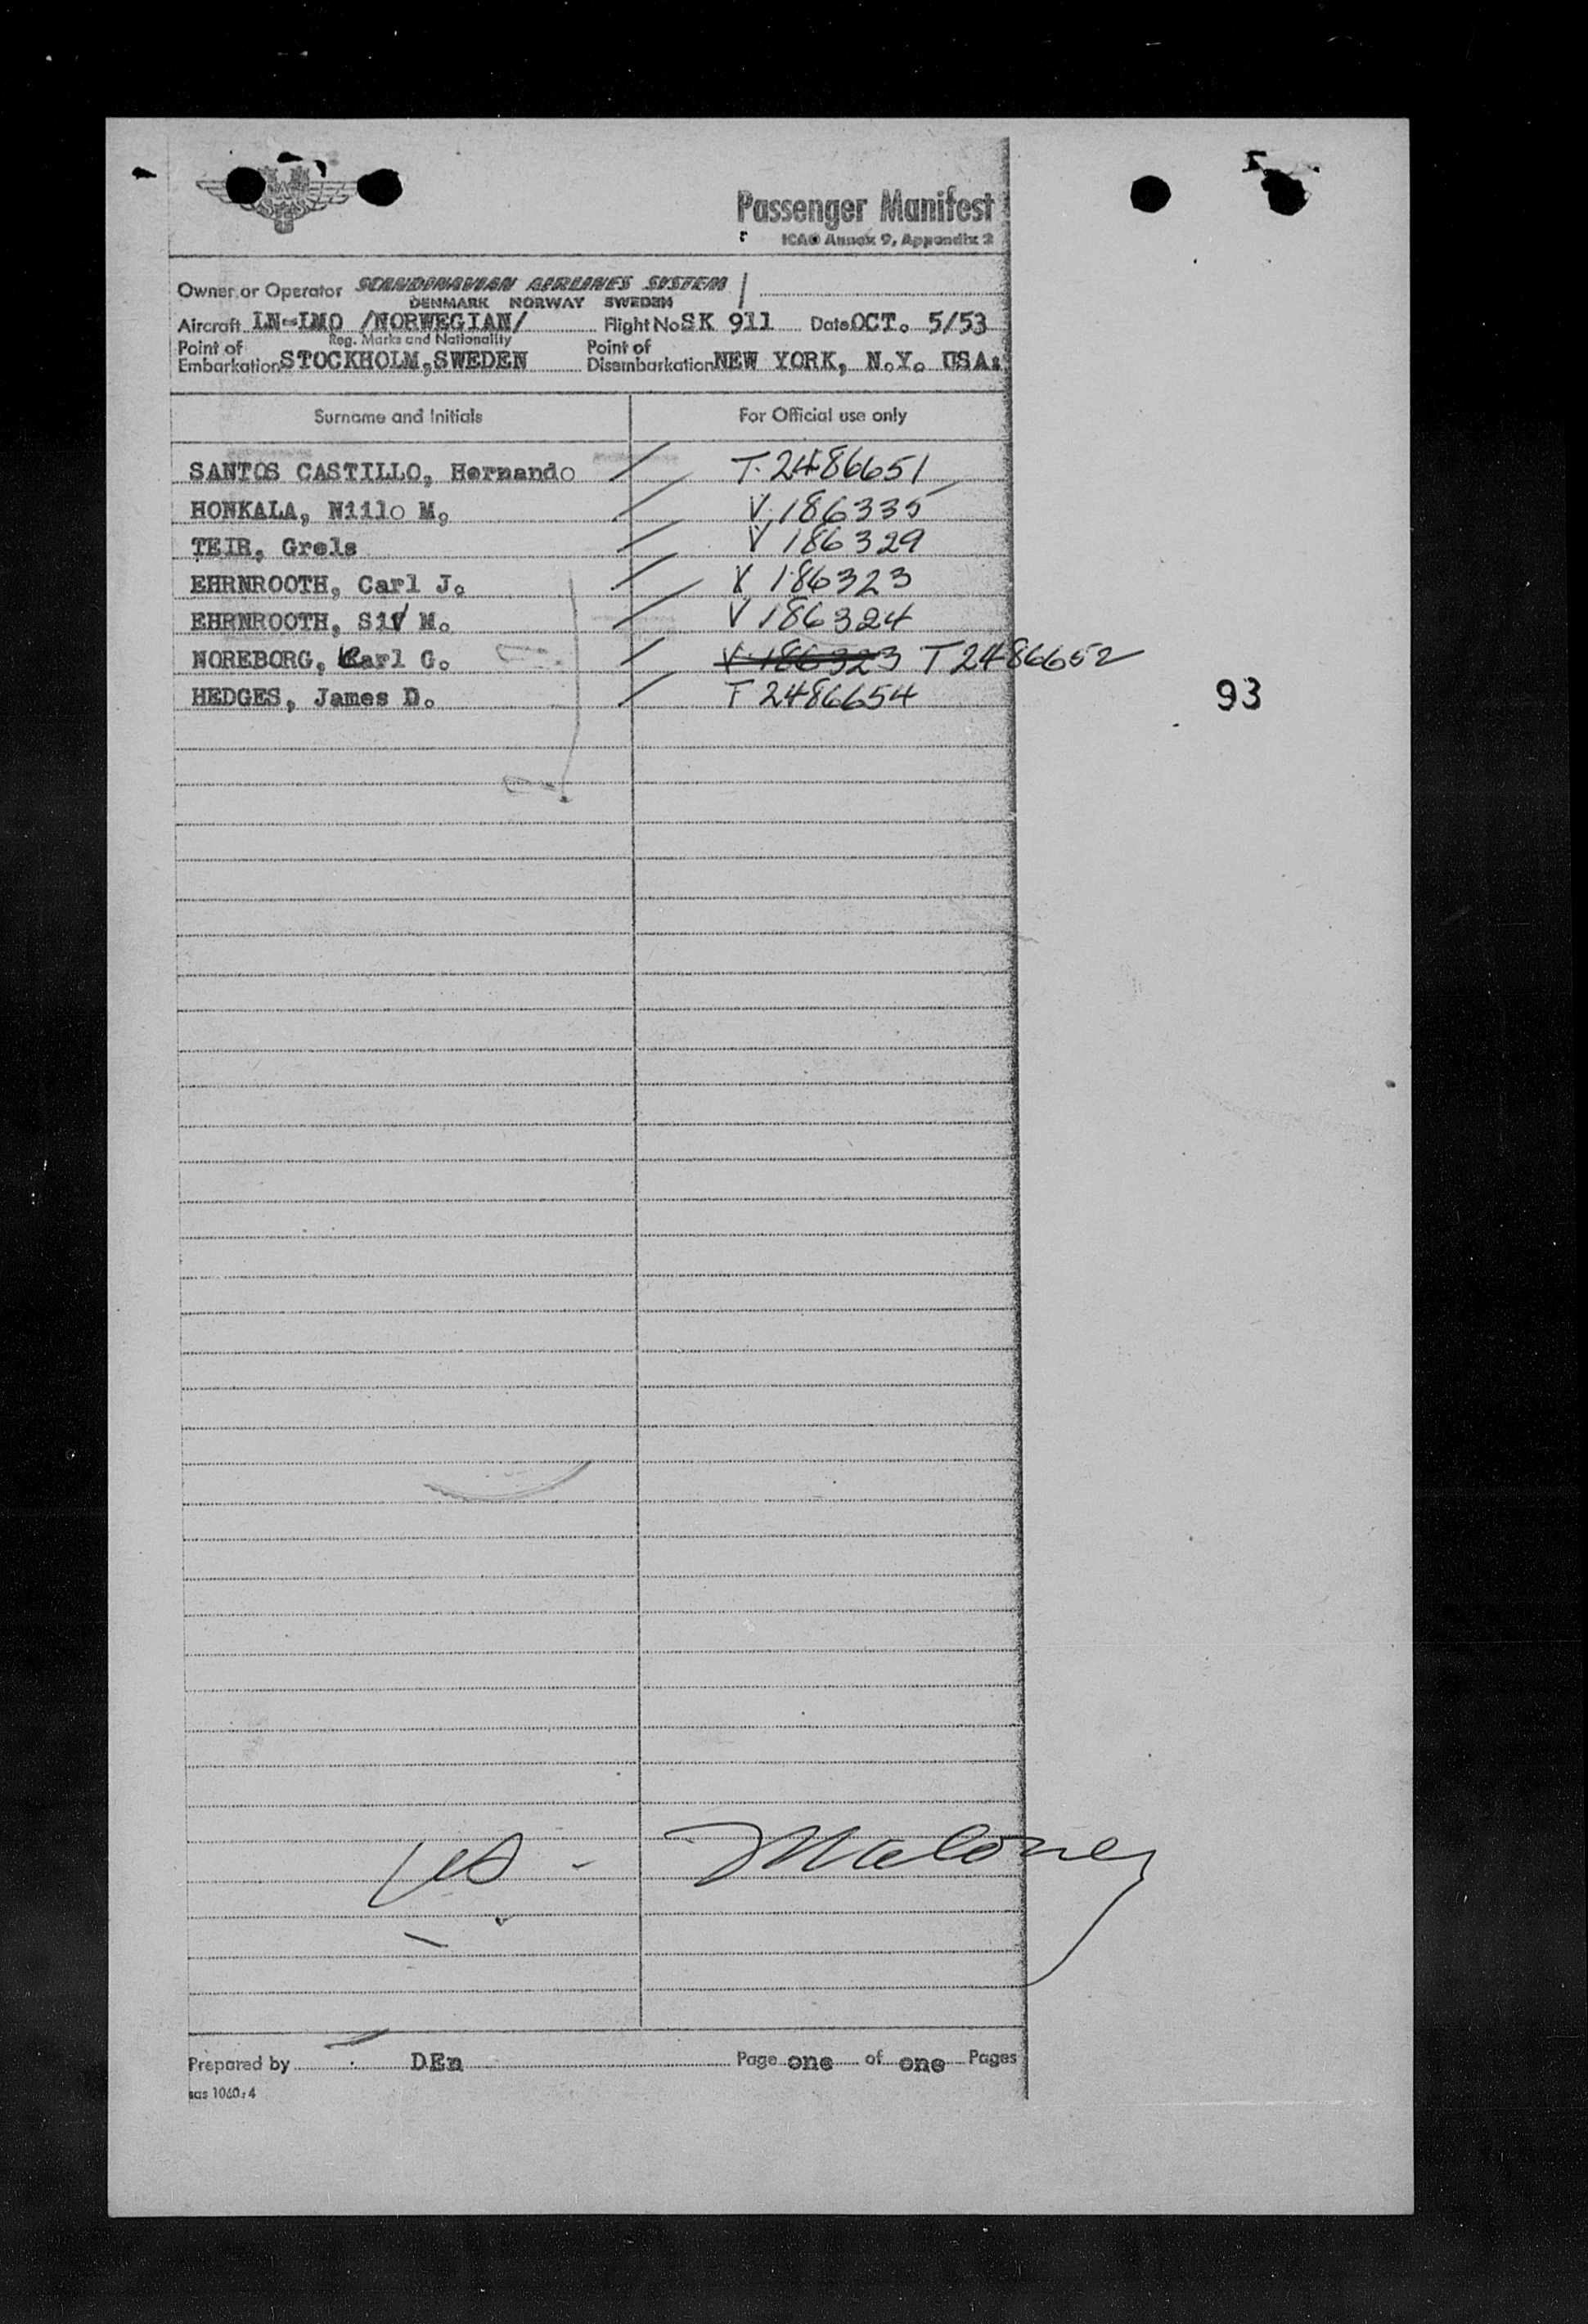 Passenger Manifest
ICAO Annex 9, Appendix 2
Owner or Operator SCANDINAVIAN AIRLINES SYSTEM
DENMARK NORWAY SWEDEN
Aircraft LN-LMO /NORWEGIAN/ Flight No SK 911 Date OCT. 5/53
Reg. Marks and Nationality
Point of Embarkation STOCKHOLM, SWEDEN Point of Disembarkation NEW YORK, N.Y. USA.
Surname and Initials For Official use only
SANTOS CASTILLO, Hernando / T. 2486651
HONKALA, Niilo M, / V 186335
TEIR, Grels / V 186329
EHRNROOTH, Carl J. / V 186323
EHRNROOTH, Siv M. / V 186324
NOREBORG, Karl G. / V 186323 T 2486652
HEDGES, James D. / T 2486654
93
Maloney
Prepared by DEn Page one of one Pages
sas 1060:4